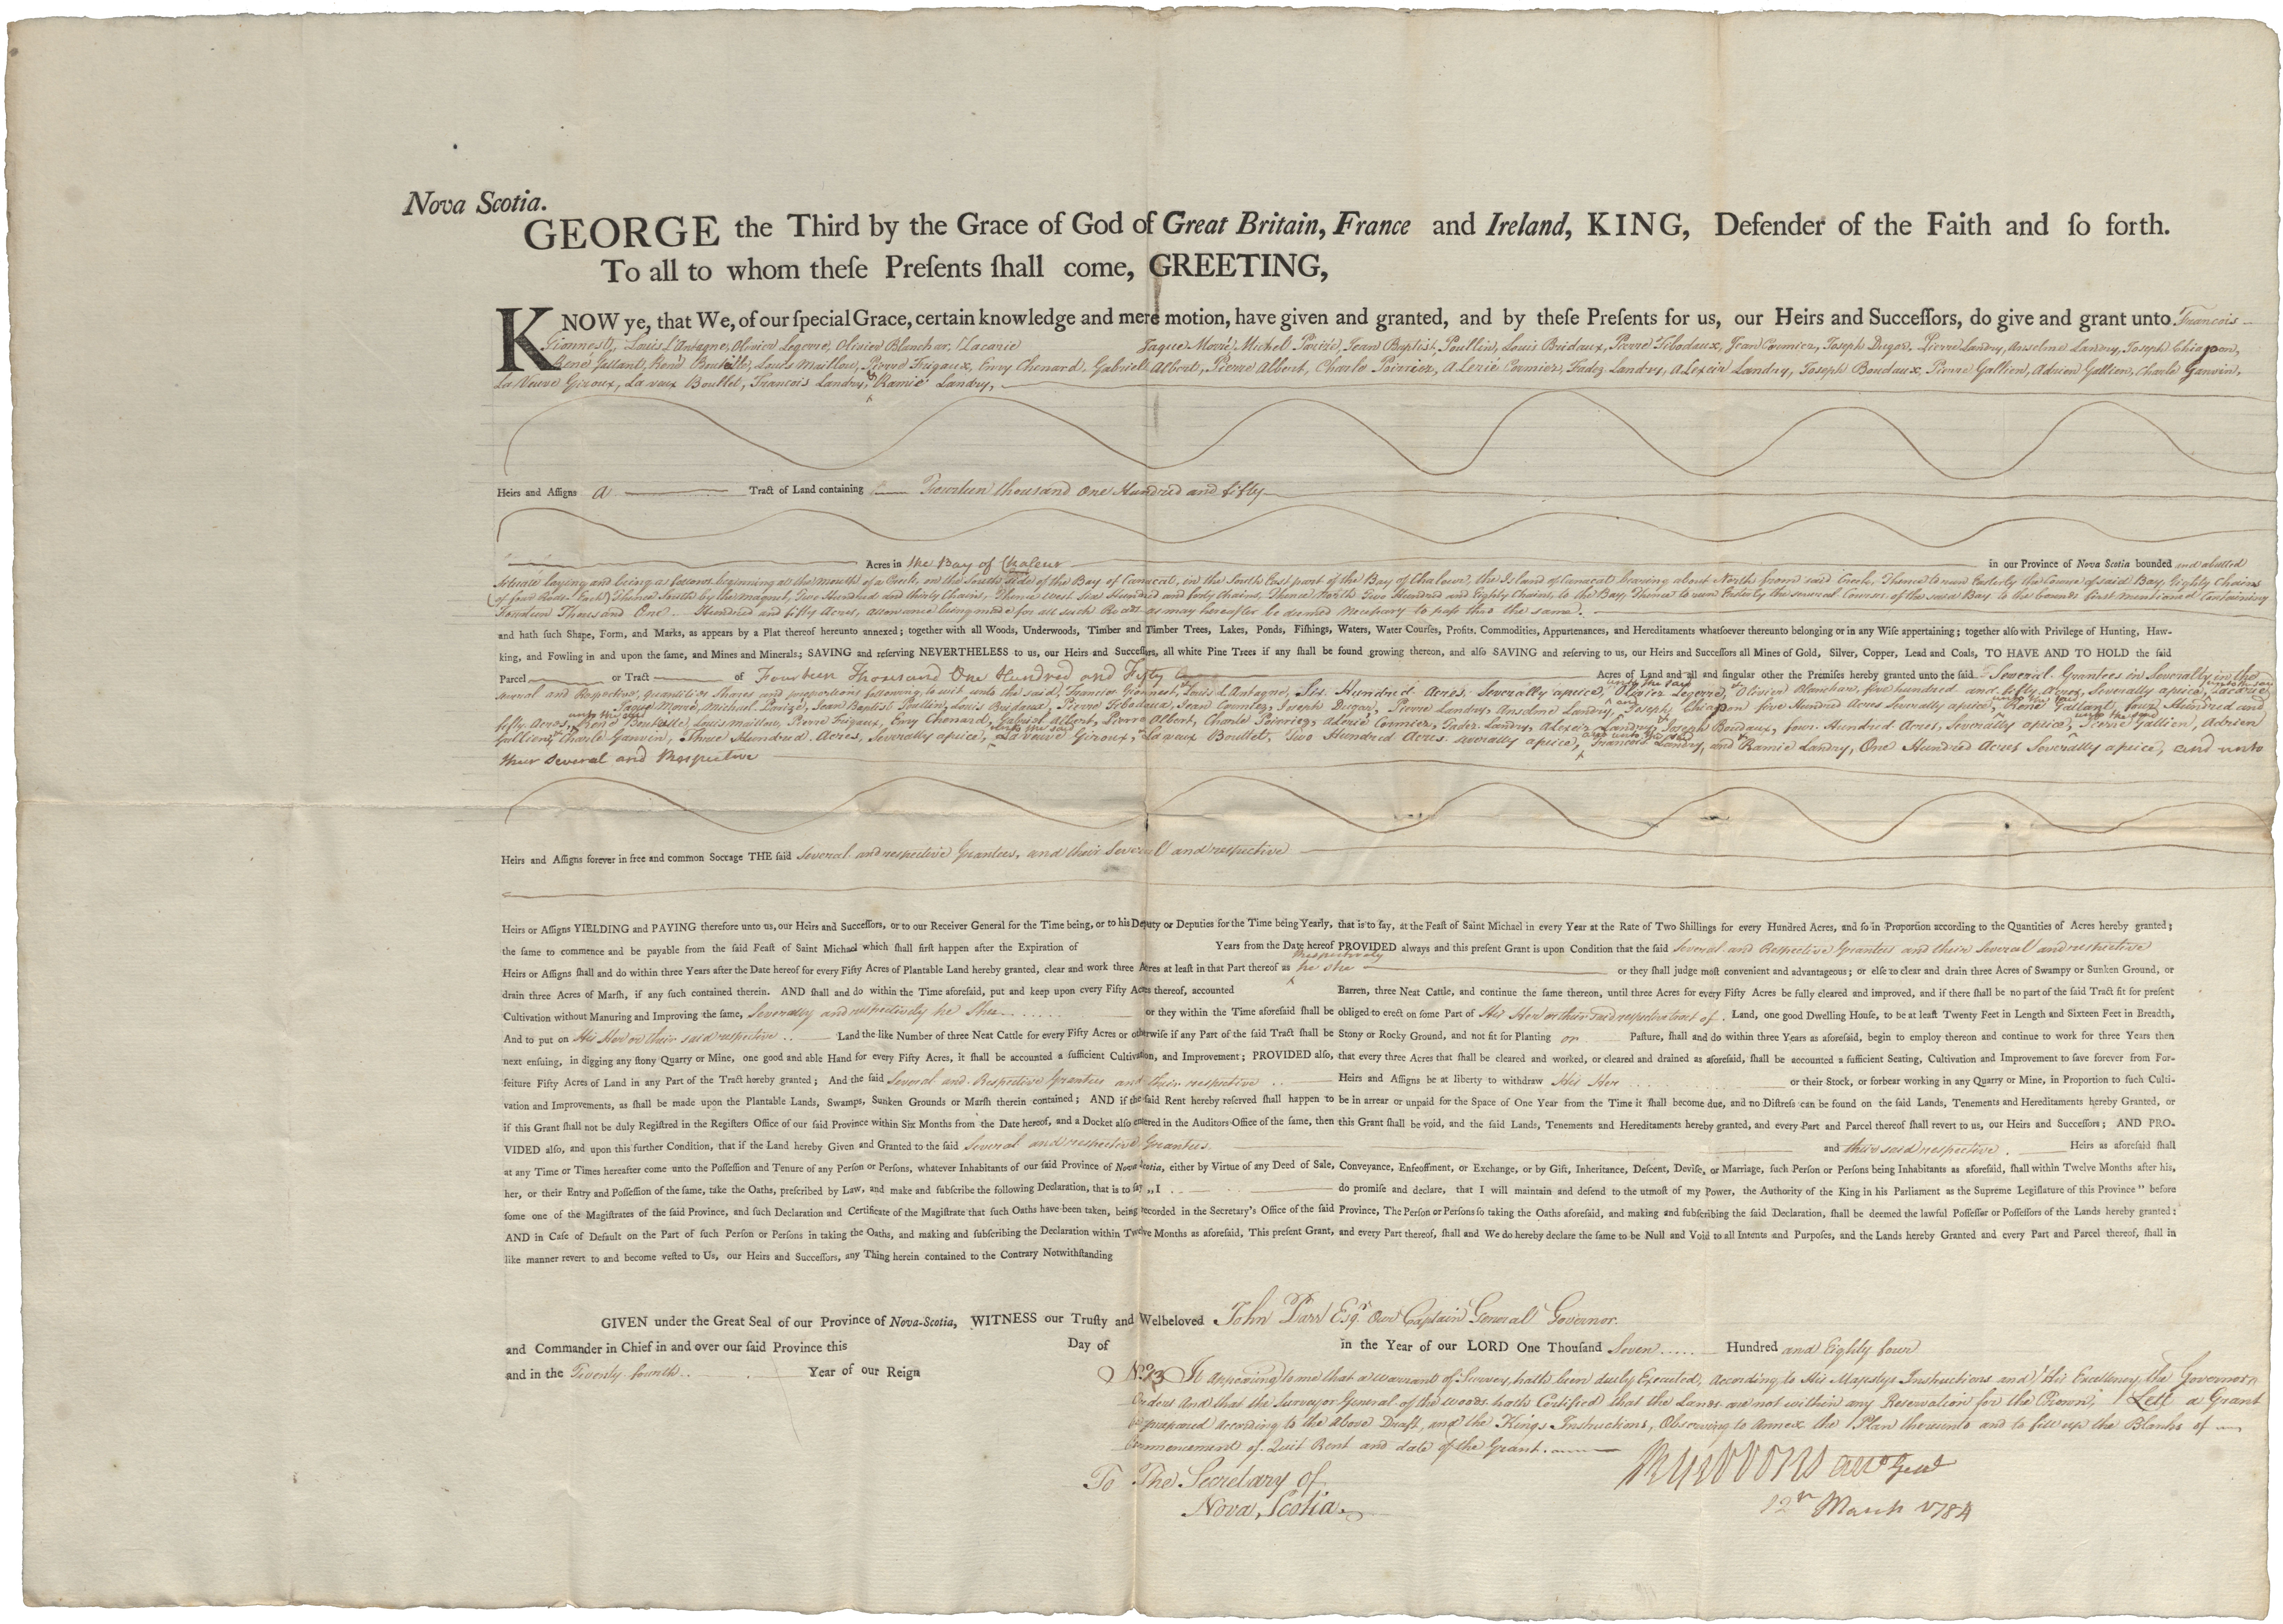 Nova Scotia.
GEORGE the Third by the Grace of God of Great Britain, France and Ireland, KING, Defender of the Faith and ſo forth.
To all to whom theſe Preſents ſhall come, GREETING,
KNOW ye, that We, of our ſpecial Grace, certain knowledge and mere motion, have given and granted, and by theſe Preſents for us, our Heirs and Succeſſors, do give and grant unto Francois
Gionnest, Louis L'Antagne, Olivier Legerre, Olivier Blanchar, Lacarie Jaque Morié, Michel Parizé, Jean Baptist, Poullin, Louis Bridaux, Pierre Tibodaux, Jean Cormier, Joseph Dugar, Pierre Landry, Anselme Landry, Joseph Chiapon,
René Gallant, René Boutelle, Louis Maillou, Pierre Frigaux, Envy Chenard, Gabriel Albert, Pierre Albert, Charle Poirrier, Alexié Cormier, Fadez Landry, Alexeir Landry, Joseph Boudaux, Pierre Gallien, Adrien Gallien, Charle Ganvin,
La Veuve Giroux, La vaux Boutlet, Francois Landry, & Ramié Landry,
Heirs and Aſſigns a Tract of Land containing Fourteen thousand One Hundred and fifty
Acres in the Bay of Chaleur in our Province of Nova Scotia bounded and abutted
Situate laying and being as follows, beginning at the mouth of a Creek, on the South Side of the Bay of Caracat, in the South East part of the Bay of Chaleur, the Island of Caracat bearing about North from said Creek, Thence to run Easterly the Course of said Bay, Eighty Chains
(of four Rods Each) Thence South by the magnet, Two Hundred and thirty Chains, Thence West Six Hundred and forty Chains, Thence North Two Hundred and Eighty Chains, to the Bay, Thence to run Easterly the several Courses of the said Bay to the bounds first mentioned Containing
Fourteen Thousand One Hundred and fifty Acres, allowance being made for all such Roads as may hereafter be deemed necessary to pass thro the same.
and hath ſuch Shape, Form, and Marks, as appears by a Plat thereof hereunto annexed; together with all Woods, Underwoods, Timber and Timber Trees, Lakes, Ponds, Fiſhings, Waters, Water Courſes, Profits, Commodities, Appurtenances, and Hereditaments whatſoever thereunto belonging or in any Wiſe appertaining; together alſo with Privilege of Hunting, Haw-
king, and Fowling in and upon the ſame, and Mines and Minerals; SAVING and reſerving NEVERTHELESS to us, our Heirs and Succeſſors, all white Pine Trees if any ſhall be found growing thereon, and alſo SAVING and reſerving to us, our Heirs and Succeſſors all Mines of Gold, Silver, Copper, Lead and Coals, TO HAVE AND TO HOLD the ſaid
Parcel or Tract of Fourteen Thousand One Hundred and Fifty Acres of Land and all and ſingular other the Premiſes hereby granted unto the ſaid Several Grantees in Severalty in the
several and Respective, quantities shares and proportions following, to wit, unto the said, Francois Gionnest, & Louis L'Antagne, Six Hundred Acres Severally apiece, unto the said Olivier Legerre, & Olivier Blanchar, five hundred and fifty Acres, Severally apiece, unto the said Lacarie
Jaque Morié, Michiel Parizé, Jean Baptist Poullin, Louis Bridaux, Pierre Tibodaux, Jean Cormier, Joseph Dugar, Pierre Landry, Anselme Landry, and Joseph Chiapon five Hundred Acres Severally apiece, unto the said René Gallant, four Hundred and
fifty Acres, unto the said René Boutelle, Louis Maillou, Pierre Frigaux, Envy Chenard, Gabriel Albert, Pierre Albert, Charle Poirrier, Alexié Cormier, Fadez Landry, Alexeir Landry, & Joseph Boudaux, four Hundred Acres, Severally apiece, unto the said Pierre Gallien, Adrien
Gallien, & Charle Ganvin, Three Hundred Acres, Severally apiece, unto the said La Veuve Giroux, & La vaux Boutlet, Two Hundred Acres severally apiece, and unto the said Francois Landry, and Ramié Landry, One Hundred Acres Severally apiece, and unto
their several and Respective
Heirs and Aſſigns forever in free and common Soccage THE ſaid Several and respective Grantees, and their Several and respective
Heirs or Aſſigns YIELDING and PAYING therefore unto us, our Heirs and Succeſſors, or to our Receiver General for the Time being, or to his Deputy or Deputies for the Time being Yearly, that is to ſay, at the Feaſt of Saint Michael in every Year at the Rate of Two Shillings for every Hundred Acres, and ſo in Proportion according to the Quantities of Acres hereby granted;
the ſame to commence and be payable from the ſaid Feaſt of Saint Michael which ſhall firſt happen after the Expiration of Years from the Date hereof PROVIDED always and this preſent Grant is upon Condition that the ſaid Several and Respective Grantees and their Several and respective
Heirs or Aſſigns ſhall and do within three Years after the Date hereof for every Fifty Acres of Plantable Land hereby granted, clear and work three Acres at leaſt in that Part thereof as respectively he she or they ſhall judge moſt convenient and advantageous; or elſe to clear and drain three Acres of Swampy or Sunken Ground, or
drain three Acres of Marſh, if any ſuch contained therein. AND ſhall and do within the Time aforeſaid, put and keep upon every Fifty Acres thereof, accounted Barren, three Neat Cattle, and continue the ſame thereon, until three Acres for every Fifty Acres be fully cleared and improved, and if there ſhall be no part of the ſaid Tract fit for preſent
Cultivation without Manuring and Improving the ſame, Severally and respectively he She or they within the Time aforeſaid ſhall be obliged to erect on ſome Part of His Her or their said respective tract of Land, one good Dwelling Houſe, to be at leaſt Twenty Feet in Length and Sixteen Feet in Breadth,
And to put on His Her or their said respective Land the like Number of three Neat Cattle for every Fifty Acres or otherwiſe if any Part of the ſaid Tract ſhall be Stony or Rocky Ground, and not fit for Planting or Paſture, ſhall and do within three Years as aforeſaid, begin to employ thereon and continue to work for three Years then
next enſuing, in digging any ſtony Quarry or Mine, one good and able Hand for every Fifty Acres, it ſhall be accounted a ſufficient Cultivation, and Improvement; PROVIDED alſo, that every three Acres that ſhall be cleared and worked, or cleared and drained as aforeſaid, ſhall be accounted a ſufficient Seating, Cultivation and Improvement to ſave forever from For-
feiture Fifty Acres of Land in any Part of the Tract hereby granted; And the ſaid Several and Respective Grantees and their respective Heirs and Aſſigns be at liberty to withdraw His Her or their Stock, or forbear working in any Quarry or Mine, in Proportion to ſuch Culti-
vation and Improvements, as ſhall be made upon the Plantable Lands, Swamps, Sunken Grounds or Marſh therein contained; AND if the ſaid Rent hereby reſerved ſhall happen to be in arrear or unpaid for the Space of One Year from the Time it ſhall become due, and no Diſtreſs can be found on the ſaid Lands, Tenements and Hereditaments hereby Granted, or
if this Grant ſhall not be duly Regiſtred in the Regiſters Office of our ſaid Province within Six Months from the Date hereof, and a Docket alſo entered in the Auditors Office of the ſame, then this Grant ſhall be void, and the ſaid Lands, Tenements and Hereditaments hereby granted, and every Part and Parcel thereof ſhall revert to us, our Heirs and Succeſſors; AND PRO-
VIDED alſo, and upon this further Condition, that if the Land hereby Given and Granted to the ſaid Several and respective Grantees. and their said respective Heirs as aforeſaid ſhall
at any Time or Times hereafter come unto the Poſſeſſion and Tenure of any Perſon or Perſons, whatever Inhabitants of our ſaid Province of Nova Scotia, either by Virtue of any Deed of Sale, Conveyance, Enfeoffment, or Exchange, or by Gift, Inheritance, Deſcent, Deviſe, or Marriage, ſuch Perſon or Perſons being Inhabitants as aforeſaid, ſhall within Twelve Months after his,
her, or their Entry and Poſſeſſion of the ſame, take the Oaths, preſcribed by Law, and make and ſubſcribe the following Declaration, that is to ſay „I do promiſe and declare, that I will maintain and defend to the utmoſt of my Power, the Authority of the King in his Parliament as the Supreme Legiſlature of this Province" before
ſome one of the Magiſtrates of the ſaid Province, and ſuch Declaration and Certificate of the Magiſtrate that ſuch Oaths have been taken, being recorded in the Secretary's Office of the ſaid Province, The Perſon or Perſons ſo taking the Oaths aforeſaid, and making and ſubſcribing the ſaid Declaration, ſhall be deemed the lawful Poſſeſſor or Poſſeſſors of the Lands hereby granted:
AND in Caſe of Default on the Part of ſuch Perſon or Perſons in taking the Oaths, and making and ſubſcribing the Declaration within Twelve Months as aforeſaid, This preſent Grant, and every Part thereof, ſhall and We do hereby declare the ſame to be Null and Void to all Intents and Purpoſes, and the Lands hereby Granted and every Part and Parcel thereof, ſhall in
like manner revert to and become veſted to Us, our Heirs and Succeſſors, any Thing herein contained to the Contrary Notwithſtanding
GIVEN under the Great Seal of our Province of Nova-Scotia, WITNESS our Truſty and Welbeloved John Parr Esqr. Our Captain General Governor.
and Commander in Chief in and over our ſaid Province this Day of in the Year of our LORD One Thouſand Seven Hundred and Eighty four
and in the Twenty fourth Year of our Reign
No. 13 It appearing to me that a warrant of Survey, hath been duely Executed, According to His Majestys Instructions and His Excellency the Governors
Orders And that the Surveyor General of the woods hath Certified that the Lands are not within any Reservation for the Crown, Lett a Grant
be prepared According to the Above Draft, and the Kings Instructions, Observing to Annex the Plan thereunto and to fill up the Blanks of
Commencement of Quit Rent and date of the Grant.
To The Secretary of
Nova Scotia
12th March 1784